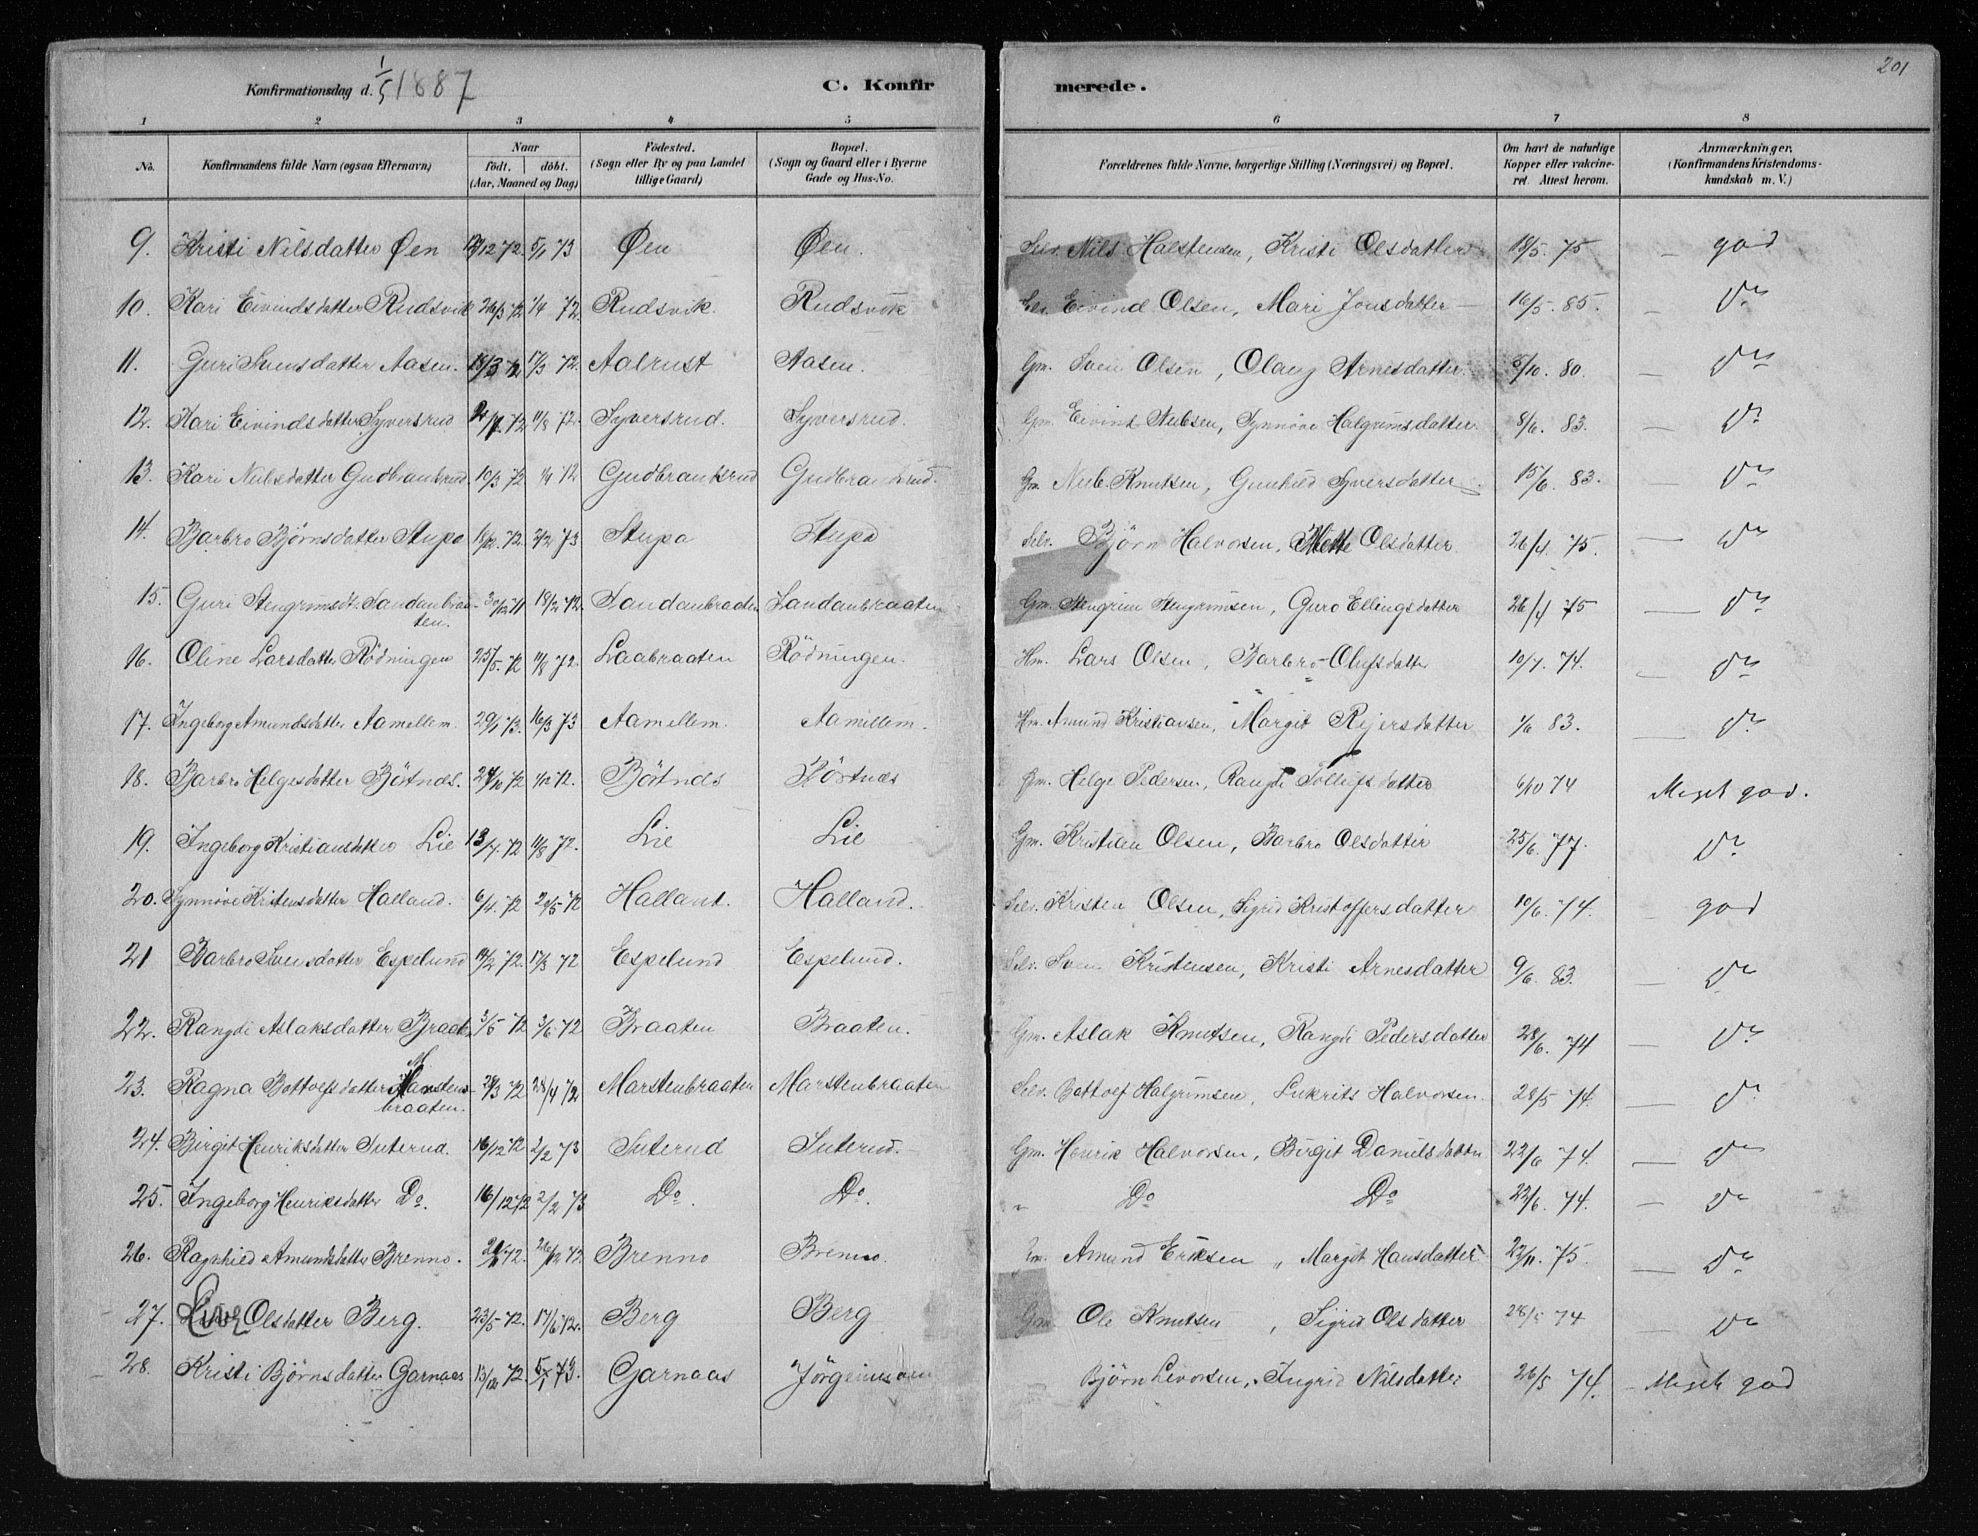 201
Konfirmationsdag d. 1/5 1887 C. Konfir merede.
1 2 3 4 5 6 7 8
No. Konfirmandens fulde Navn (ogsaa Efternavn) Naar født. døbt. (Aar, Maaned og Dag) Fødested. (Sogn eller By og paa Landet tillige Gaard) Bopæl. (Sogn og Gaard eller i Byerne Gade og Hus-No. Forældrenes fulde Navne, borgerlige Stilling (Næringsvei) og Bopæl. Om havt de naturlige Kopper eller vakcineret. Attest herom. Anmærkninger. (Konfirmandens Kristendomskundskab m. V.)
9. Kristi Nilsdatter Øen 12 72. 5/1 73 Øen Øen. Selv. Nils Halstensen, Kristi Olsdatter 18/5. 75 god
10. Kari Eivindsdatter Rudsvik 26/3 72 1/4 72. Rudsvik. Rudsvik Selv. Eivind Olsen, Mari Jonsdatter 16/5. 85. Do
11. Guri Svensdatter Aasen. 72 17/3 72. Aalrust Aasen. Gm. Sven Olsen, Olaug Arnesdatter 80. Do
12. Kari Eivindsdatter Syversrud 72 11/8 72. Syversrud. Syversrud. Gm. Eivind Nubsen, Synnøve Halgrimsdatter. 8/6. 83. Do
13. Kari Nubsdatter Gudbransrud 10/3 72 1/4 72 Gudbransrud Gudbrandsrud. Gm. Nub. Knutsen, Gunhild Syversdatter 15/6. 83. Do
14. Barbro Bjørnsdatter Stupa 18/12. 72. 2/2 73 Stupa Stupa Selv. Bjørn Halvorsen, Mette Olsdatter 26/4. 75. Do
15. Guri Stengrimsdt. Sandanbraaten. 30/12 71 18/2 72. Sandanbraaten Sandanbraaten Gm. Stengrim Stengrimsen, Guro Ellingsdatter 26/4 75 Do
16. Oline Larsdatter Rödningen 25/5. 72 11/8 72. Laabraaten Rödningen. Hm. Lars Olsen, Barbro Olufsdatter 10/7. 74. Do
17. Ingeborg Amundsdatter Aamellem. 29/1 73. 16/3 73 Aamellem. Aamillem. Hm. Amund Kristiansen, Margit Rejersdatter 1/6 83. Do
18. Barbro Helgesdatter Börtnes. 24/10 72 1/12 72. Börtnes Börtnes Gm. Helge Pedersen, Rangdi Tollefsdatter 6/10 74 Meget god.
19. Ingeborg Kristiansdatter Lie 13/7. 72 11/8 72. Lie Lie Gm. Kristian Olsen, Barbro Olsdatter 25/6. 77. Do
20. Synnøve Kristensdatter Halland. 6/4. 72 2/5 72 Halland. Halland. Selv. Kristen Olsen, Sigrid Kristoffersdatter 10/6. 74. god
21 Barbro Svensdatter Espelund 14/2 72. 17/3 72 Espelund Espelund. Selv. Sven Kristensen, Kristi Arnesdatter 9/6. 83. Do
22. Rangdi Aslaksdatter Braaten 3/5 72 2/6 72 Braaten Braaten. Gm. Aslak Knutsen, Rangdi Pedersdatter 28/6. 74 Do
23. Ragna Bottolfsdatter Marstensbraaten. 28/3 72 28/4 72 Marstenbraaten Marstenbraaten Selv. Bottolf Halgrimsen, Lukrits Halvorsen. 28/5 74. Do
24. Birgit Henriksdatter Suterud. 16/12 72 2/2 73 Suterud Suterud. Gm. Henrik Halvorsen, Birgit Danielsdatter 22/6 74. Do
25. Ingeborg Henriksdatter Do. 16/12 72 2/2 73 Do. Do. „ Do Do 22/6. 74. Do
26. Ragnhild Amundsdatter Brenno. 72. 26/12 72 Brenno Brenno. Amund Eriksen „ Margit Hansdatter 22/11. 75. Do
27. Olsdatter Berg. 23/5 72. 17/6 72. Berg Berg Gm. Ole Knutsen, Sigrid Olsdatter 28/5 74 Do
28. Kristi Björnsdatter Garnaas 13/12 72. 5/1 73. Garnaas Björn Livorsen, Ingrid Nilsdatter 26/5 74. Meget god